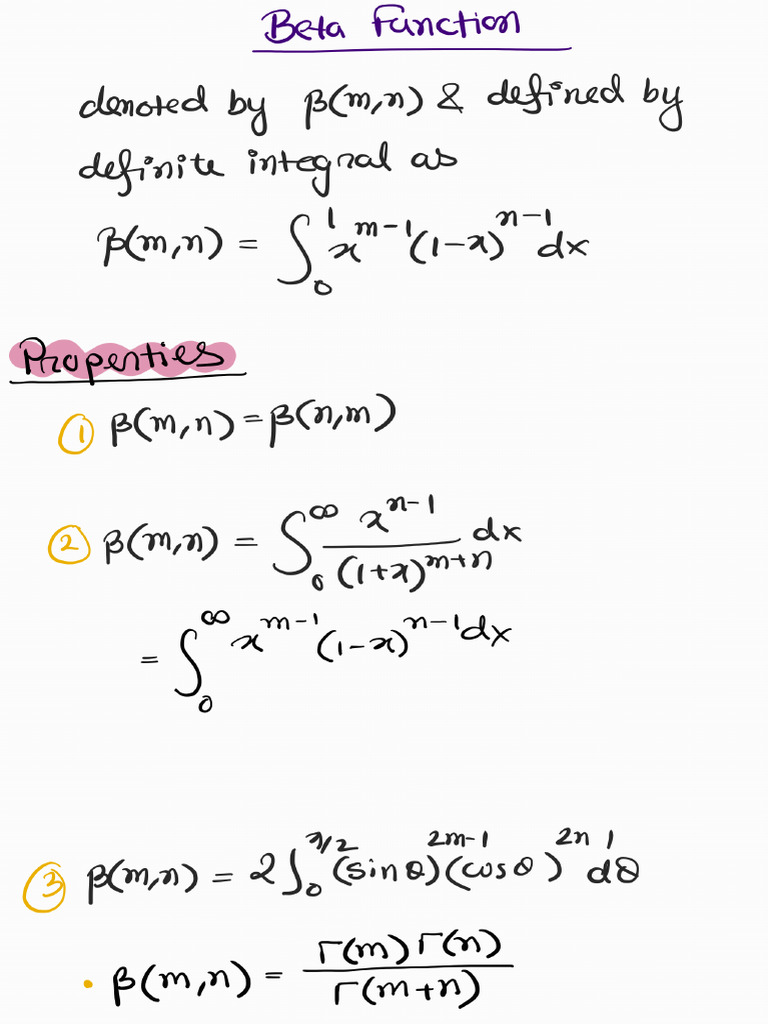 Beta Function
denoted by β(m,n) & defined by
definite integral as
β(m,n) = ∫₀¹ x^{m-1} (1-x)^{n-1} dx
Properties
① β(m,n) = β(n,m)
② β(m,n) = ∫₀^∞ x^{n-1} / (1+x)^{m+n} dx
= ∫₀^∞ x^{m-1} (1-x)^{n-1} dx
③ β(m,n) = 2∫₀^{π/2} (sinθ)^{2m-1} (cosθ)^{2n 1} dθ
• β(m,n) = Γ(m) Γ(n) / Γ(m+n)